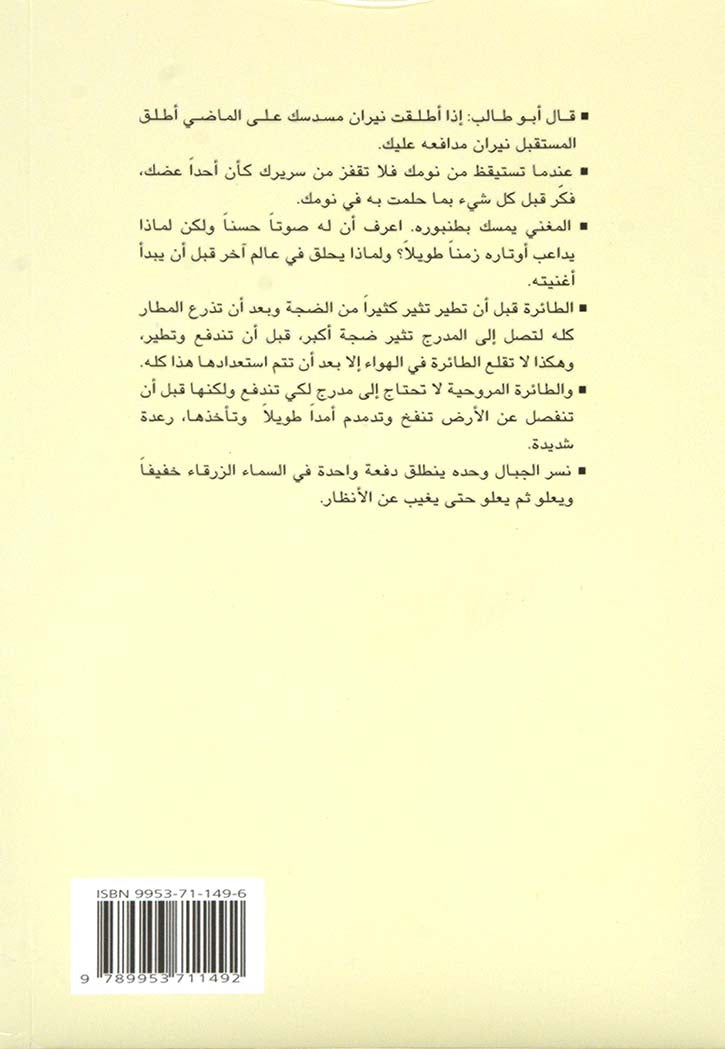 ▪ قال أبو طالب: إذا أطلقت نيران مسدسك على الماضي أطلق
المستقبل نيران مدافعه عليك.
▪ عندما تستيقظ من نومك فلا تقفز من سريرك كأن أحداً عضك،
فكّر قبل كل شيء بما حلمت به في نومك.
▪ المغني يمسك بطنبوره. اعرف أن له صوتاً حسناً ولكن لماذا
يداعب أوتاره زمناً طويلاً؟ ولماذا يحلق في عالم آخر قبل أن يبدأ
أغنيته.
▪ الطائرة قبل أن تطير تثير كثيراً من الضجة وبعد أن تذرع المطار
كله لتصل إلى المدرج تثير ضجة أكبر، قبل أن تندفع وتطير،
وهكذا لا تقلع الطائرة في الهواء إلا بعد أن تتم استعدادها هذا كله.
▪ والطائرة المروحية لا تحتاج إلى مدرج لكي تندفع ولكنها قبل أن
تنفصل عن الأرض تنفخ وتدمدم أمداً طويلاً وتأخذها، رعدة
شديدة.
▪ نسر الجبال وحده ينطلق دفعة واحدة في السماء الزرقاء خفيفاً
ويعلو ثم يعلو حتى يغيب عن الأنظار.
ISBN 9953-71-149-6
9 789953 711492